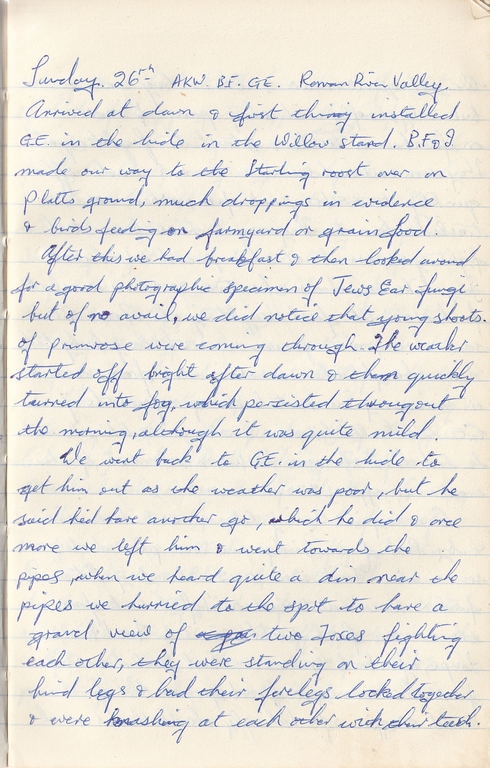 Sunday. 26th AKW. B.F. G.E. Roman River Valley.
Arrived at dawn & first thing installed
G.E. in the hide in the Willow stand. B.F & I.
made our way to the Starling roost over on
Platts ground, much droppings in evidence
& birds feeding on farmyard or grain food.
After this we had breakfast & then looked around
for a good photographic specimen of Jews Ear fungi
but of no avail, we did notice that young shoots.
of primrose were coming through. The weather
started off bright after dawn & then quickly
turned into fog, which persisted througout
the morning, although it was quite mild.
We went back to G.E. in the hide to
get him out as the weather was poor, but he
said he'd have another go, which he did & once
more we left him & went towards the
pipes, when we heard quite a din near the
pipes we hurried to the spot to have a
grand view of two Foxes fighting
each other, they were standing on their
hind legs & had their forelegs locked together
& were at each other with their teeth.